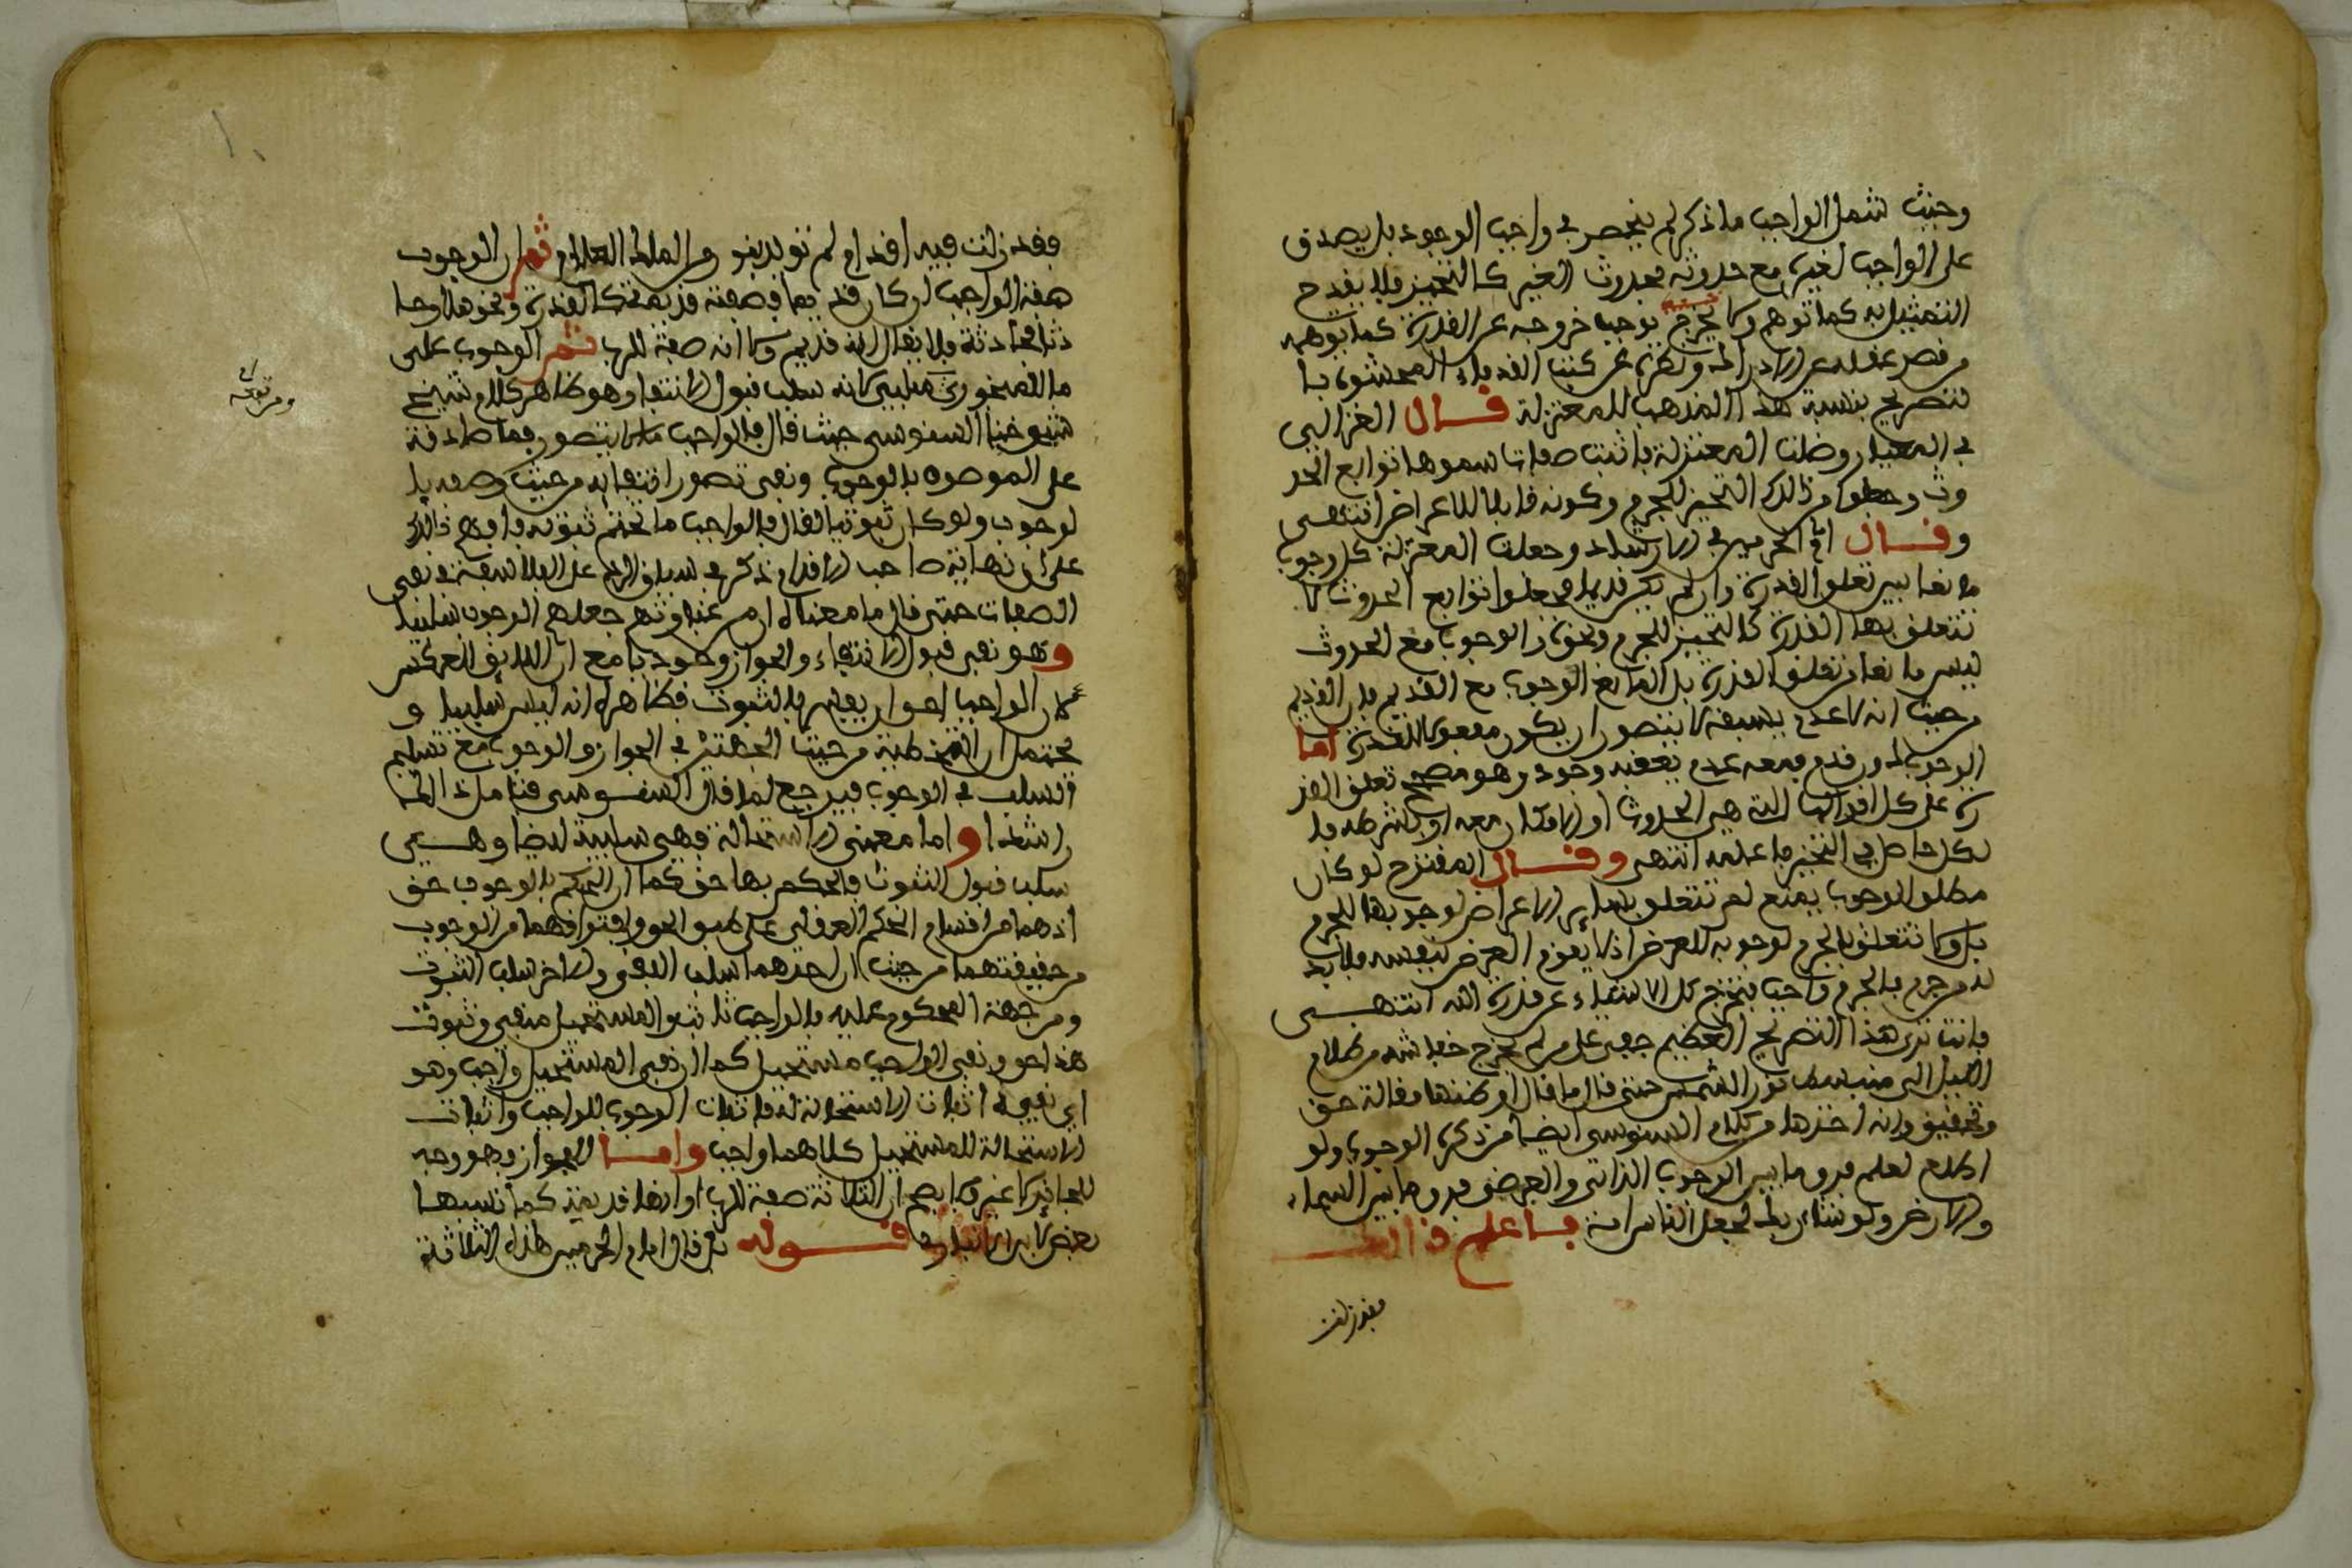 وحيث شمل الواجب ما ذكر لم ينحصر في واجب الوجود بل يصدق
على الواجب لغيره مع حدوثه بحدوث الغير كالتحيز فلا يقدح
التمثيل به كما توهم ولا يخرج يوجب خروجه عن القدرة كما توهمه
من قصر عقله عن الإدراك ونظره عن كتب القدماء المحشوة با
لتصريح بنسبة هذا المذهب للمعتزلة قال الغزالي
في المعيار وضلت المعتزلة فأثبت صفات سموها توابع الحد
وث وجعلوا من ذلك التحيز للجرم وكونه قابلا للأعراض انتهى
وقال إمام الحرمين في الإرشاد وجعلت المعتزلة كل وجوب
مانعا من تعلق القدرة وإن لم يكن قديما فجعلوا توابع الحدوث لا
تتعلق بها القدرة كالتحيز للجرم ونحوه والوجوب مع الحدوث
ليس مانعا من تعلق القدرة بل المانع الوجوب مع القدم فإن القديم
من حيث أنه لا عدم يسبقه لا يتصور أن يكون مفعولا للقدرة أما
الوجوب دون قدم فمعه عدم يعقبه وجود وهو مصحح تعلق القد
رة على كل أقوال التي هي الحدوث أو الإمكان معه أو بشرطه فا
لكل حاصل في التحيز فاعلمه انتهى وقال المقترح لو كان
مطلق الوجوب يمنع لم تتعلق بسائر الأعراض لوجوبها للجرم
بل ولا تتعلق بالجرم لوجوبه للعرض إذ لا يقوم العرض بنفسه فلا بد
له من جرم فالجرم واجب فتخرج كل الأشياء عن قدرة الله انتهى
فأنت ترى هذا التصريح العظيم خفي على من لم يخرج خفاشه من ظلام
الليل إلى منبسط نور الشمس حتى قال ما قال أو ظنها مقالة حق
وتحقيق وأنه أخذها من كلام السنوسي أيضا من ذكره الوجوب ولو
اطلع لعلم فرق ما بين الوجوب الذاتي والعرضي فرق ما بين السماء
والأرض ولو شاء ربك لجعل الناس أمة فاعلم ذلك
فقد زلت
فقد زلت فيه أقدام لم تؤيد بنور من الملك العلام ثم إن الوجوب
صفة الواجب إن كان قديما فصفة قديمة كالقدرة ونحوها أو حا
دثا فحادثة فلا يقال إنه قديم ولا أنه صفة للرب ثم الوجوب على
ما للمنجوري سلبي لأنه سلب قبول الانتفاء وهو ظاهر كلام شيخ
شيوخنا السنوسي حيث قال فالواجب ما لا يتصور فما صادقة
على الموصوف بالوجوب ونفي تصور انتفائه من حيث وصفه با
لوجوب ولو كان ثبوتيا لقال فالواجب ما تحتم ثبوته فافهم ذلك
على أن نهاية صاحب الإقدام ذكر في سياق الرد على الفلاسفة في نفي
الصفات حتى قال ما معناه إن من غباوتهم جعلهم الوجوب سلبيا
وهو نفي قبول الانتفاء والجواز وجوديا مع أن اللائق العكس
لأن الواجب أحق أن يفسر بالثبوت فظاهره أنه ليس سلبيا و
يحتمل أن التخطئة من حيث الجهتين في الجواز والوجوب مع تسليم
السلب في الوجوب فيرجع لما قال السنوسي فتأمل ذلك
راشدا وأما معنى الاستحالة فهي سلبية أيضا وهي
سلب قبول الثبوت فالحكم بها حق كما أن الحكم بالوجوب حق
إذ هما من أقسام الحكم العقلي على طبق الحق وافتراقهما من الوجوب
من حقيقتهما من حيث أن أحدهما سلب النفي والآخر سلب الثبوت
ومن جهة المحكوم عليه فالواجب ثابت والمستحيل منفي وثبوت
هذا حق ونفي الواجب مستحيل كما أن نفي المستحيل واجب وهو
أي نفيه إثبات الاستحالة له فإثبات الوجوب للواجب وإثبات
الاستحالة للمستحيل كلاهما واجب وأما الجواز وهو وجه
للجائز لا غير ولا يصح أن الثلاثة صفة للرب أو أنها قديمة كما نسبها
بعض قوله بل قال إمام الحرمين هذه الثلاثة